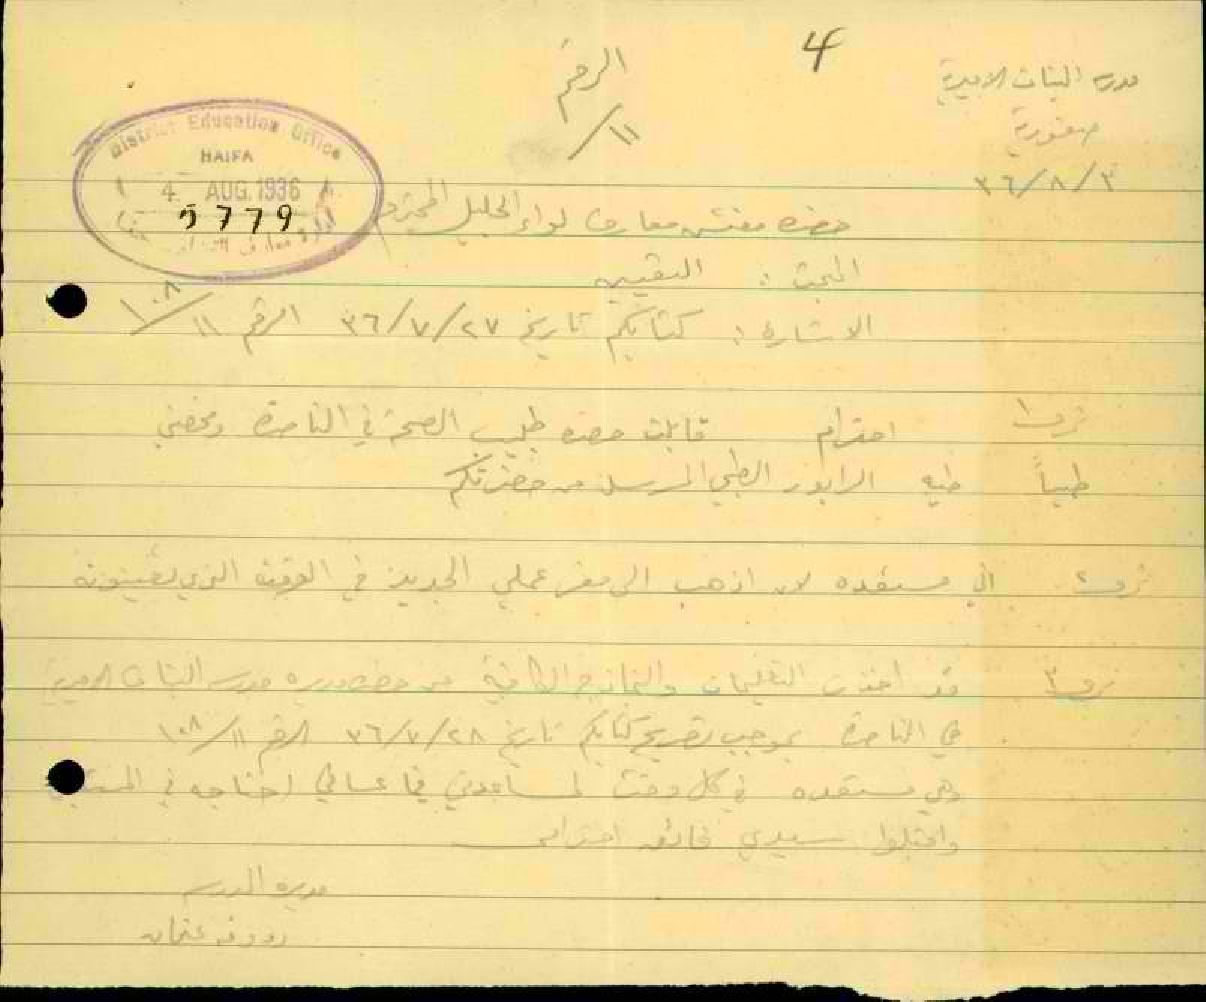 4
مدرسة البنات الاميرية
صفورية
٣٦/٨/٣
الرقم
١١/
District Education Office
HAIFA
4 AUG. 1936
5779
حضرة مفتش معارف لواء الجليل المحترم
المبحث : التعيين
الاشارة : كتابكم تاريخ ٣٦/٧/٢٧ الرقم ١١/١٠٨
احترام قابلت حضرة طبيب الصحة في الناصرة وفحصني
طبياً طيه الرابور الطبي المرسل من حضرتكم
اني مستعده لان اذهب الى مقر عملي الجديد في الوقت الذي تعينونه
قد اخذت التعليمات والنماذج الكافية من حضرة مديره مدرسة البنات الاميرية
في الناصرة بموجب تصريح كتابكم تاريخ ٣٦/٧/٢٨ الرقم ١١/١٠٨
وهي مستعده في كل وقت لمساعدتي فيما عساني احتاجه في
واقبلوا سيدي فائق احترامي
مديرة المدرسة
عثمان